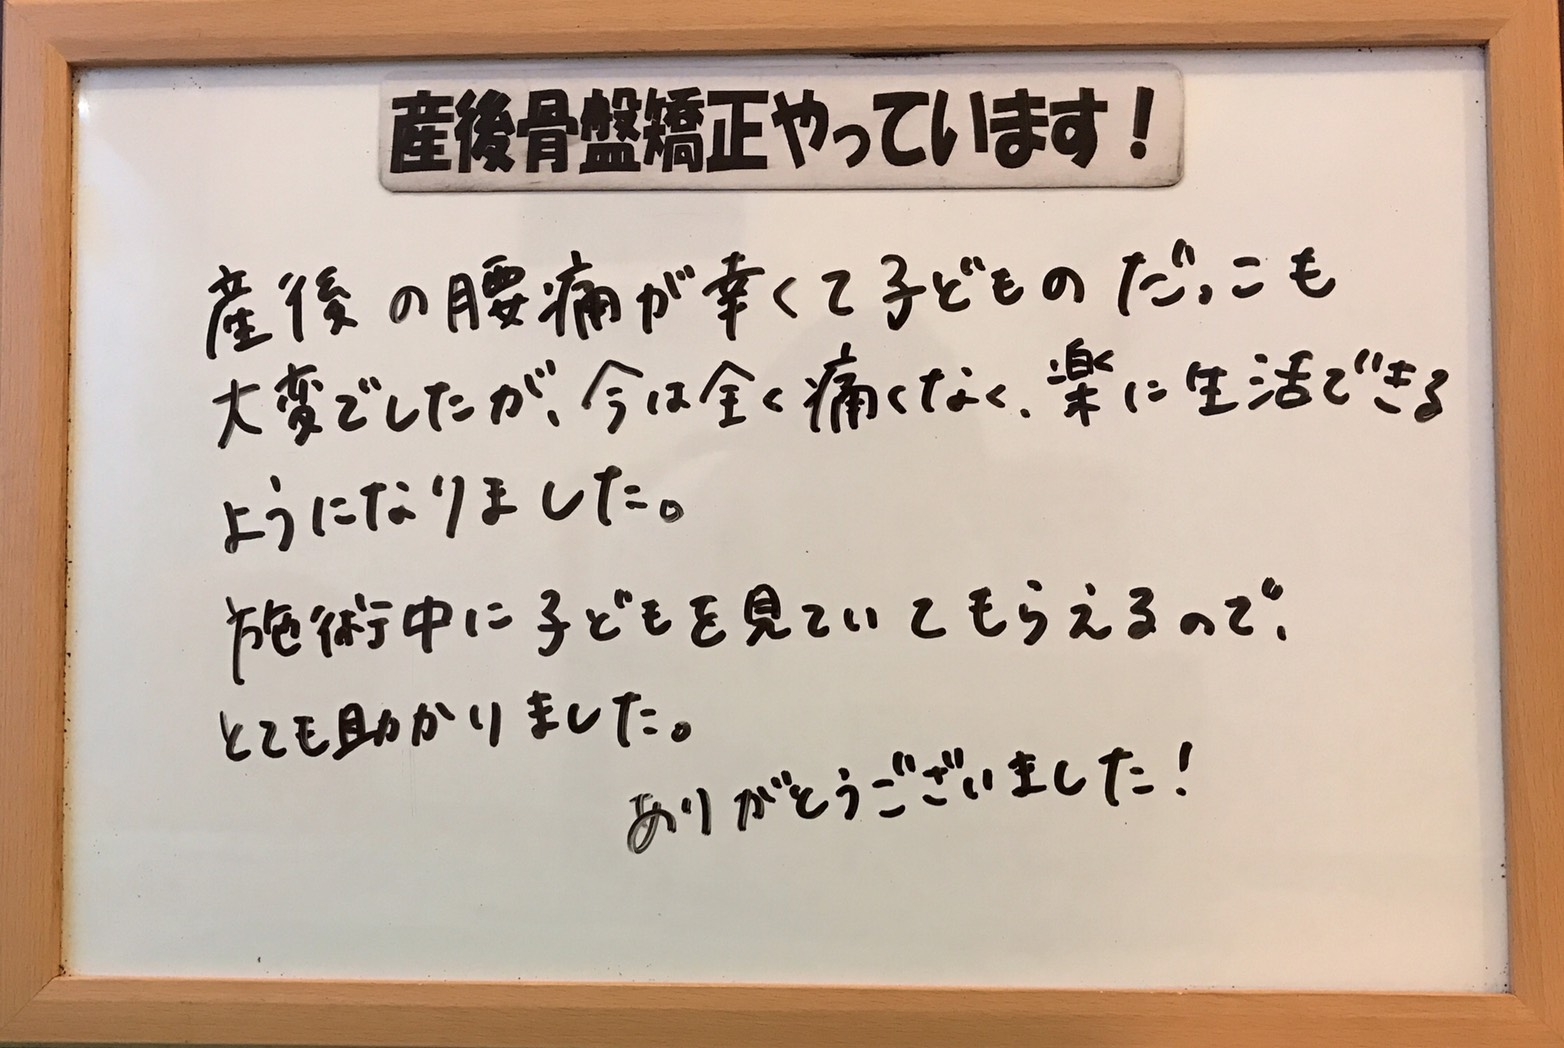 産後骨盤矯正やっています！
産後の腰痛が幸くて子どものだっこも
大変でしたが、今は全く痛くなく、楽に生活できる
ようになりました。
施術中に子どもを見ていてもらえるので、
とても助かりました。
ありがとうございました！